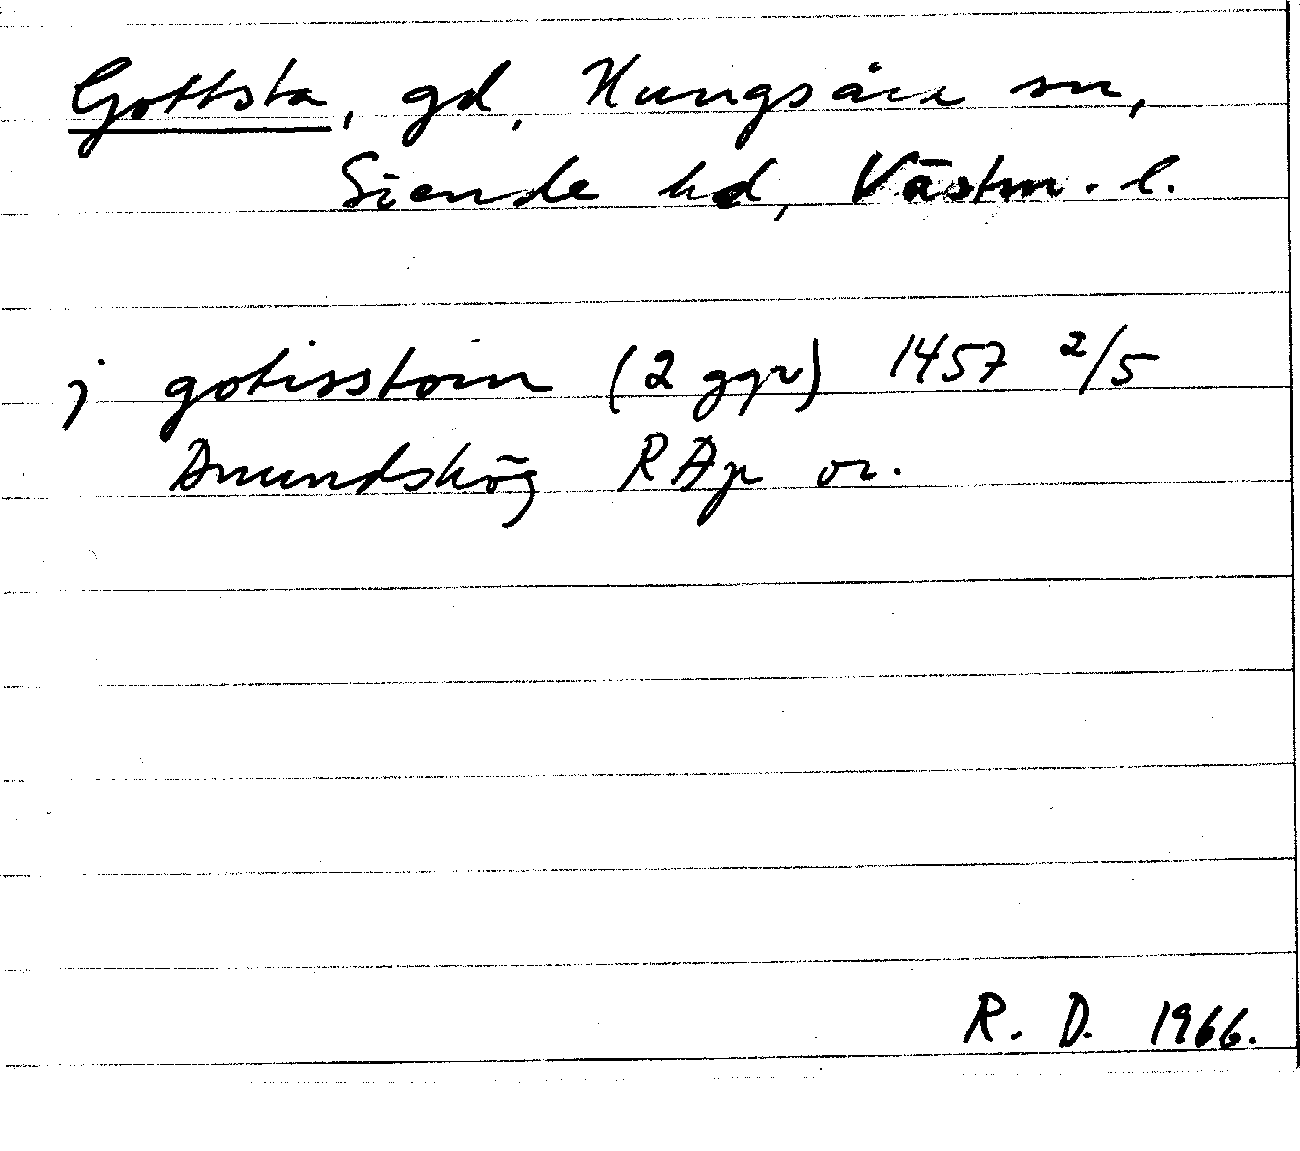 Gottsta, gd, Kungsåra sn,
Siende hd, Västm. l.
j gotisstom (2 ggr) 1457 2/5
Amundshög RAp or.
R. D. 1966.